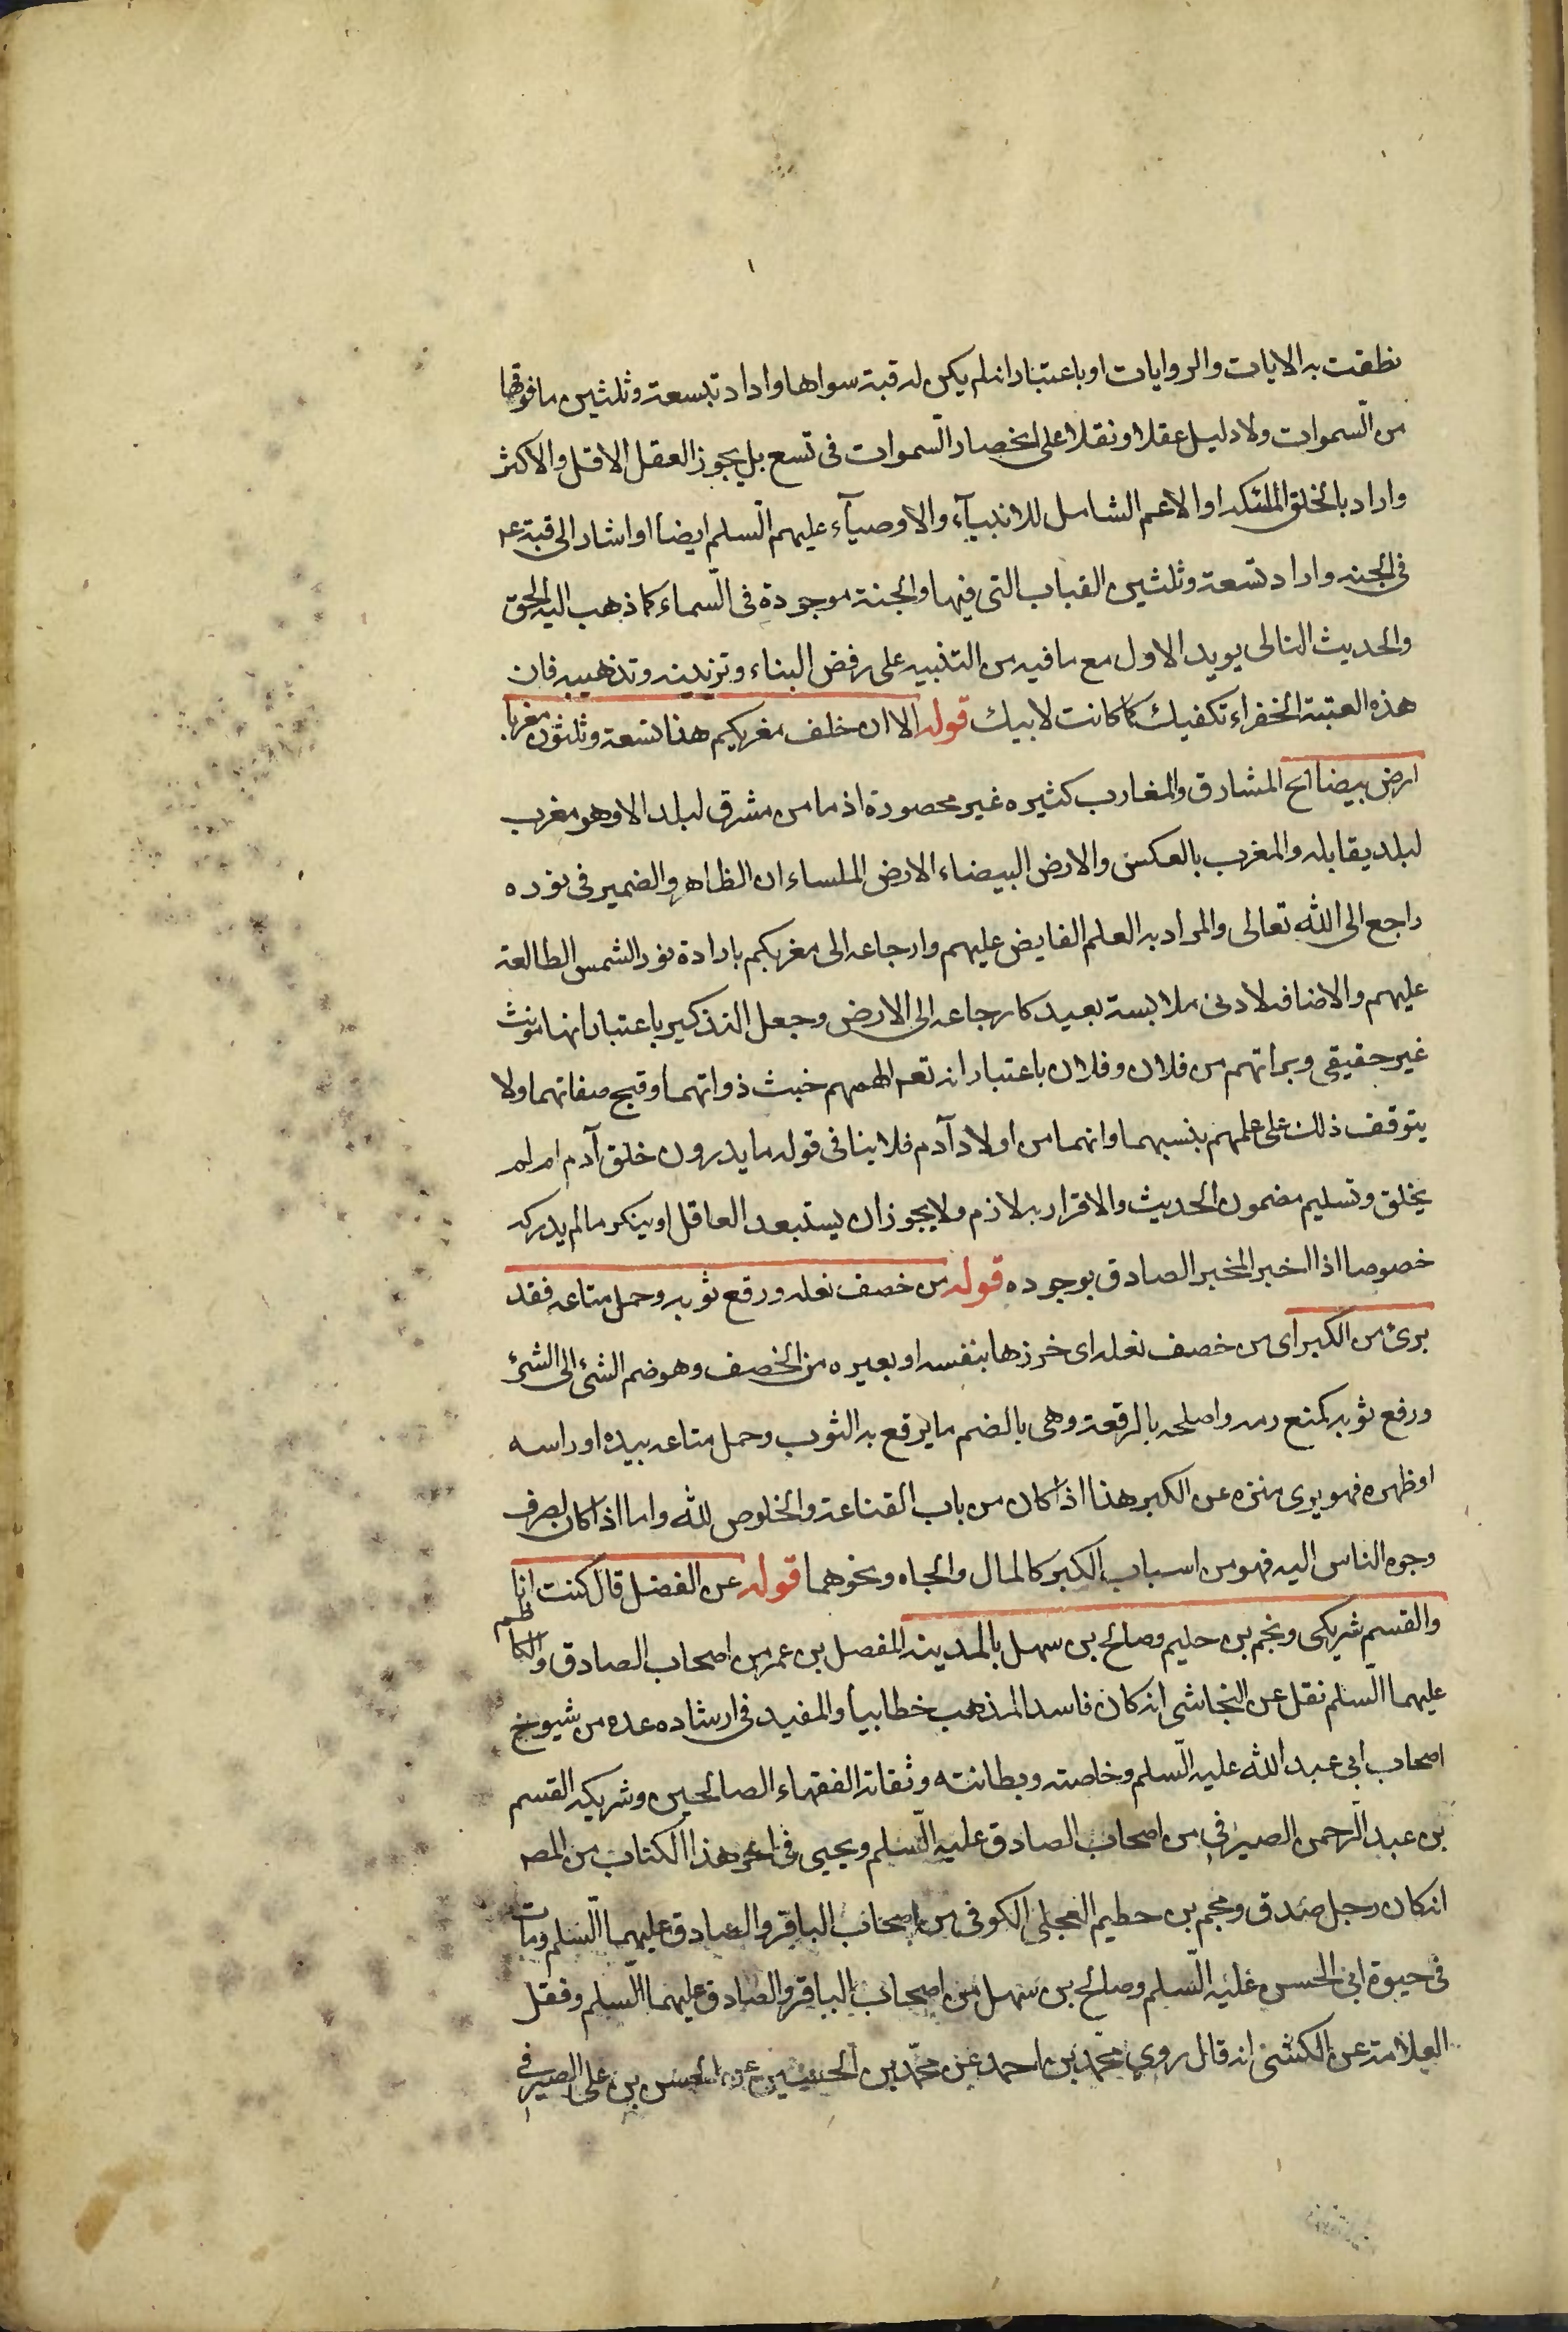 نطقت به الايات والروايات او باعتبار انه لم يكن له قبة سواها واراد بتسعة وثلثين ما فوقها
من السموات ولا دليل عقلا ونقلا على انحصار السموات فى تسع بل يجوز العقل الاقل والاكثر
واراد بالخلق الملئكه او الاعم الشامل للانبيآء والاوصيآء عليهم السلم ايضا او اشار الى قبته عم
فى الجنه واراد تسعة وثلثين القباب التى فيها والجنة موجودة فى السماء كما ذهب اليه المحق
والحديث التالى يويد الاول مع ما فيه من التنبيه على رفض البناء وتزيينه وتذهيبه فان
هذه العتبة الخضراء تكفيك كما كانت لابيك قوله الا ان خلف مغربكم هذا تسعة وثلثون مغربا
ارض بيضا الح المشارق والمغارب كثيره غير محصورة اذ ما من مشرق لبلد الا وهو مغرب
لبلد يقابله والمغرب بالعكس والارض البيضاء الارض الملساء ان الظاهر والضمير فى نوره
راجع الى الله تعالى والمراد به العلم الفايض عليهم وارجاعه الى مغربكم بارادة نور الشمس الطالعة
عليهم والاضافه لادنى ملابسة بعيد كارجاعه الى الارض وجعل التذكير باعتبار انها مونث
غير حقيقى وبراتهم من فلان وفلان باعتبار انه تعم الهمهم خبث ذواتهما وقبح صفاتهما ولا
يتوقف ذلك على علمهم بنسبهما وانهما من اولاد آدم فلا ينافى قوله ما يدرون خلق آدم ام لم
يخلق وتسليم مضمون الحديث والاقرار به لازم ولا يجوز ان يستبعد العاقل او ينكر ما لم يدركه
خصوصا اذا اخبر المخبر الصادق بوجوده قوله من خصف نعله ورقع ثوبه وحمل متاعه فقد
برئ من الكبر اى من خصف نعله اى خرزها بنفسه او بعيره من الخصف وهو ضم الشئ الى الشئ
ورقع ثوبه كمنع رمه واصلحه بالرقعة وهى بالضم ما يرقع به الثوب وحمل متاعه بيده او راسه
او ظهره فهو برى منزه عن الكبر هذا اذا كان من باب القناعة والخلوص لله واما اذا كان لصرف
وجوه الناس اليه فهو من اسباب الكبر كالمال والجاه ونحوهما قوله عن الفضل قال كنت انا
والقسم شريكى ونجم بن حليم وصالح بن سهل بالمدينه المفصل بن عمر من اصحاب الصادق والكاظم
عليهما السلم نقل عن النجاشى انه كان فاسد المذهب خطابيا والمفيد فى ارشاده عده من شيوخ
اصحاب ابى عبد الله عليه السلم وخاصته وبطانته وثقاته الفقهاء الصالحين وشريكه القسم
بن عبد الرحمن الصيرفى من اصحاب الصادق عليه السلم ويحيى فى اخر هذا الكتاب من المصـ
انه كان رجل صدق ونجم بن حطيم العجلى الكوفى من اصحاب الباقر والصادق عليهما السلم ومات
فى حيوة ابى الحسن عليه السلم وصالح بن سهل من اصحاب الباقر والصادق عليهما السلم ونقل
العلامة عن الكشى انه قال روى محمد بن احمد عن محمد بن الحسين عن الحسن بن على الصيرفى